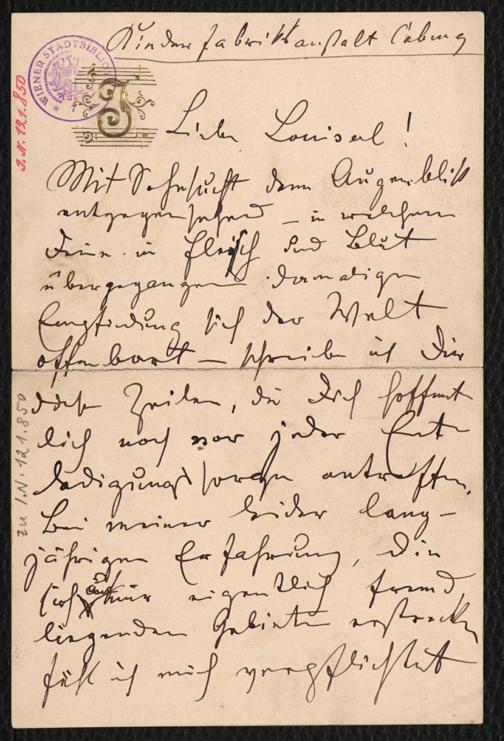 Kinderfabriksanstalt Coburg
WIENER STADTBIBLIO
J
I.N. 121.850
Lieber Louiserl!
Mit Sehnsucht dem Augenblick
entgegensehend – in welchem
Deine in Fleisch und Blut
übergegangene damalige
Empfindung sich der Welt
offenbart – schreibe ich Dir
diese Zeilen, die Dich hoffent
lich noch vor jeder Ent
ledigungssorge antreffen.
Bei meiner leider lang-
jährigen Erfahrung, die
sich auf mir eigentlich fremd
liegenden Gebieten erstreckt,
fühl ich mich verpflichtet
zu I.N. 121.850